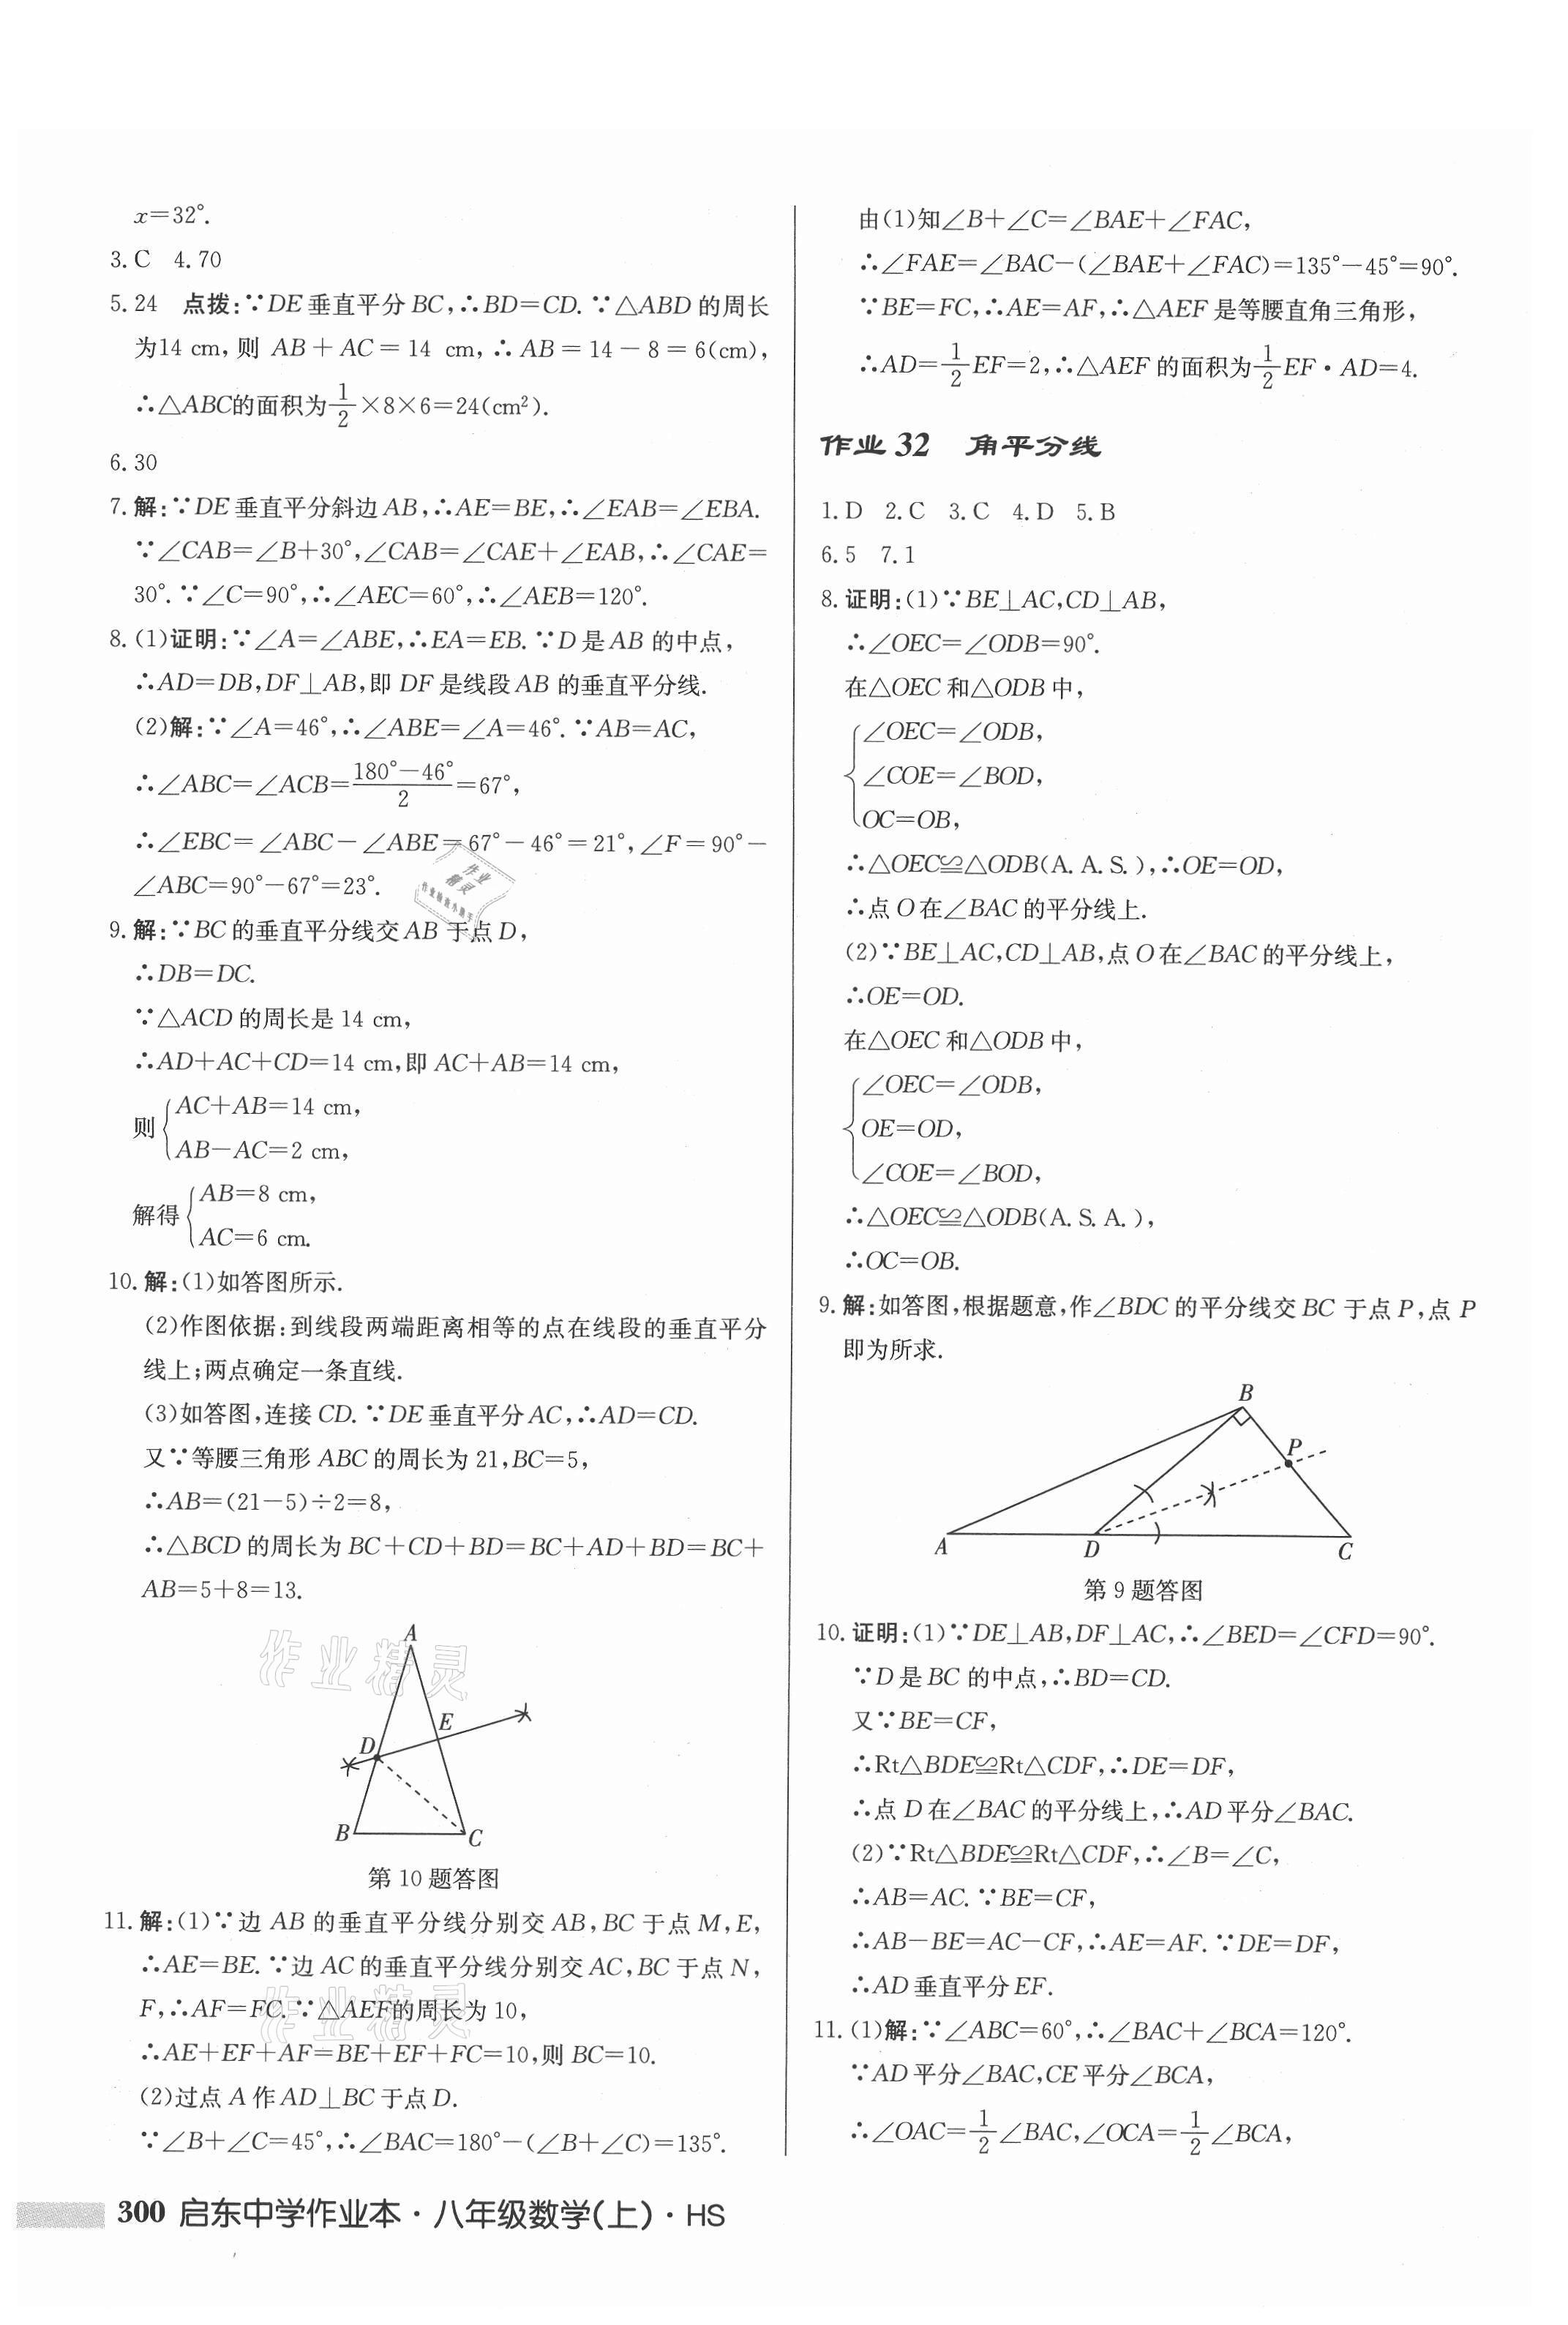 x=32°.
3. C 4. 70
5. 24 点拨:∵DE 垂直平分 BC,∴BD=CD. ∵△ABD 的周长
为14 cm, 则 AB+AC=14 cm, ∴AB=14-8=6(cm),
∴△ABC的面积为1/2×8×6=24(cm²).
6. 30
7. 解:∵DE 垂直平分斜边 AB,∴AE=BE,∴∠EAB=∠EBA.
∵∠CAB=∠B+30°,∠CAB=∠CAE+∠EAB,∴∠CAE=
30°. ∵∠C=90°,∴∠AEC=60°,∴∠AEB=120°.
8. (1)证明:∵∠A=∠ABE,∴EA=EB. ∵D 是 AB 的中点,
∴AD=DB,DF⊥AB,即 DF 是线段 AB 的垂直平分线.
(2)解:∵∠A=46°,∴∠ABE=∠A=46°. ∵AB=AC,
∴∠ABC=∠ACB=(180°-46°)/2=67°,
∴∠EBC=∠ABC-∠ABE=67°-46°=21°,∠F=90°-
∠ABC=90°-67°=23°.
9. 解:∵BC 的垂直平分线交 AB 于点 D,
∴DB=DC.
∵△ACD 的周长是 14 cm,
∴AD+AC+CD=14 cm,即 AC+AB=14 cm,
则{AC+AB=14 cm,
AB-AC=2 cm,
解得{AB=8 cm,
AC=6 cm.
10. 解:(1)如答图所示.
(2)作图依据:到线段两端距离相等的点在线段的垂直平分
线上;两点确定一条直线.
(3)如答图,连接 CD. ∵DE 垂直平分 AC,∴AD=CD.
又∵等腰三角形 ABC 的周长为 21,BC=5,
∴AB=(21-5)÷2=8,
∴△BCD 的周长为 BC+CD+BD=BC+AD+BD=BC+
AB=5+8=13.
A
E
D
B
C
第 10 题答图
11. 解:(1)∵边 AB 的垂直平分线分别交 AB,BC 于点 M,E,
∴AE=BE. ∵边 AC 的垂直平分线分别交 AC,BC 于点 N,
F,∴AF=FC. ∵△AEF的周长为 10,
∴AE+EF+AF=BE+EF+FC=10,则 BC=10.
(2)过点 A 作 AD⊥BC 于点 D.
∵∠B+∠C=45°,∴∠BAC=180°-(∠B+∠C)=135°.
由(1)知∠B+∠C=∠BAE+∠FAC,
∴∠FAE=∠BAC-(∠BAE+∠FAC)=135°-45°=90°.
∵BE=FC,∴AE=AF,∴△AEF 是等腰直角三角形,
∴AD=1/2EF=2,∴△AEF 的面积为1/2EF·AD=4.
作业 32 角平分线
1. D 2. C 3. C 4. D 5. B
6. 5 7. 1
8. 证明:(1)∵BE⊥AC,CD⊥AB,
∴∠OEC=∠ODB=90°.
在△OEC 和△ODB 中,
{∠OEC=∠ODB,
∠COE=∠BOD,
OC=OB,
∴△OEC≌△ODB(A. A. S. ),∴OE=OD,
∴点 O 在∠BAC 的平分线上.
(2)∵BE⊥AC,CD⊥AB,点 O 在∠BAC 的平分线上,
∴OE=OD.
在△OEC 和△ODB 中,
{∠OEC=∠ODB,
OE=OD,
∠COE=∠BOD,
∴△OEC≌△ODB(A. S. A. ),
∴OC=OB.
9. 解:如答图,根据题意,作∠BDC 的平分线交 BC 于点 P,点 P
即为所求.
B
P
A
D
C
第 9 题答图
10. 证明:(1)∵DE⊥AB,DF⊥AC,∴∠BED=∠CFD=90°.
∵D 是 BC 的中点,∴BD=CD.
又∵BE=CF,
∴Rt△BDE≌Rt△CDF,∴DE=DF,
∴点 D 在∠BAC 的平分线上,∴AD 平分∠BAC.
(2)∵Rt△BDE≌Rt△CDF,∴∠B=∠C,
∴AB=AC. ∵BE=CF,
∴AB-BE=AC-CF,∴AE=AF. ∵DE=DF,
∴AD 垂直平分 EF.
11. (1)解:∵∠ABC=60°,∴∠BAC+∠BCA=120°.
∵AD 平分∠BAC,CE 平分∠BCA,
∴∠OAC=1/2∠BAC,∠OCA=1/2∠BCA,
作业精灵
作业精灵
作业
精灵
300 启东中学作业本·八年级数学(上)·HS